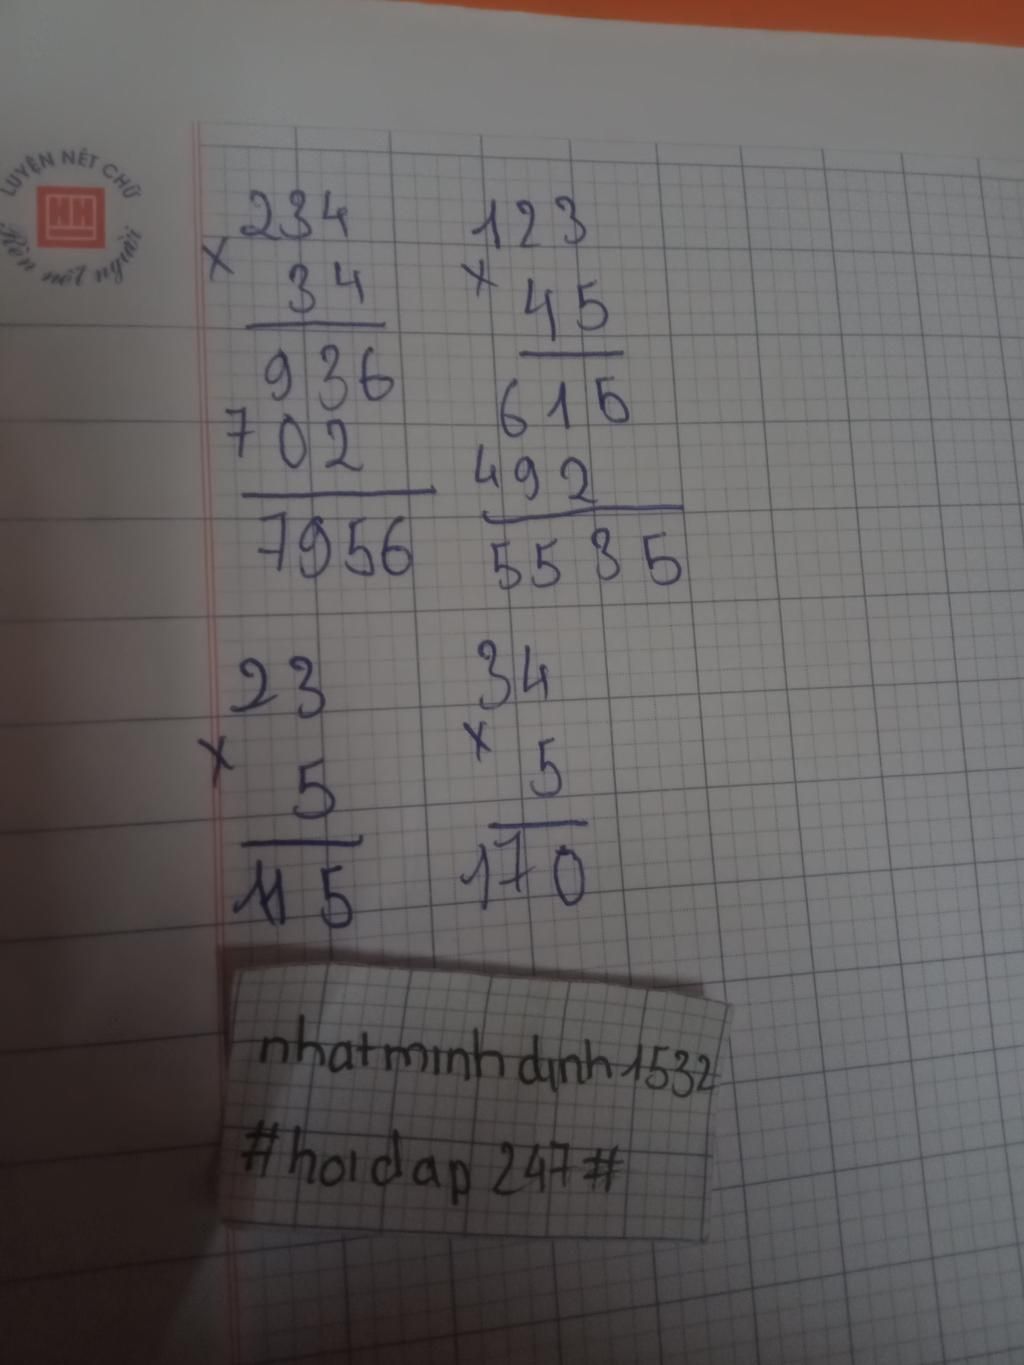 LUYỆN NÉT CHỮ
HH
Rèn nết người
234 123
× 34 × 45
936 615
702 492
7956 5535
23 34
× 5 × 5
115 170
nhatminhdinh1532
#hoidap247#